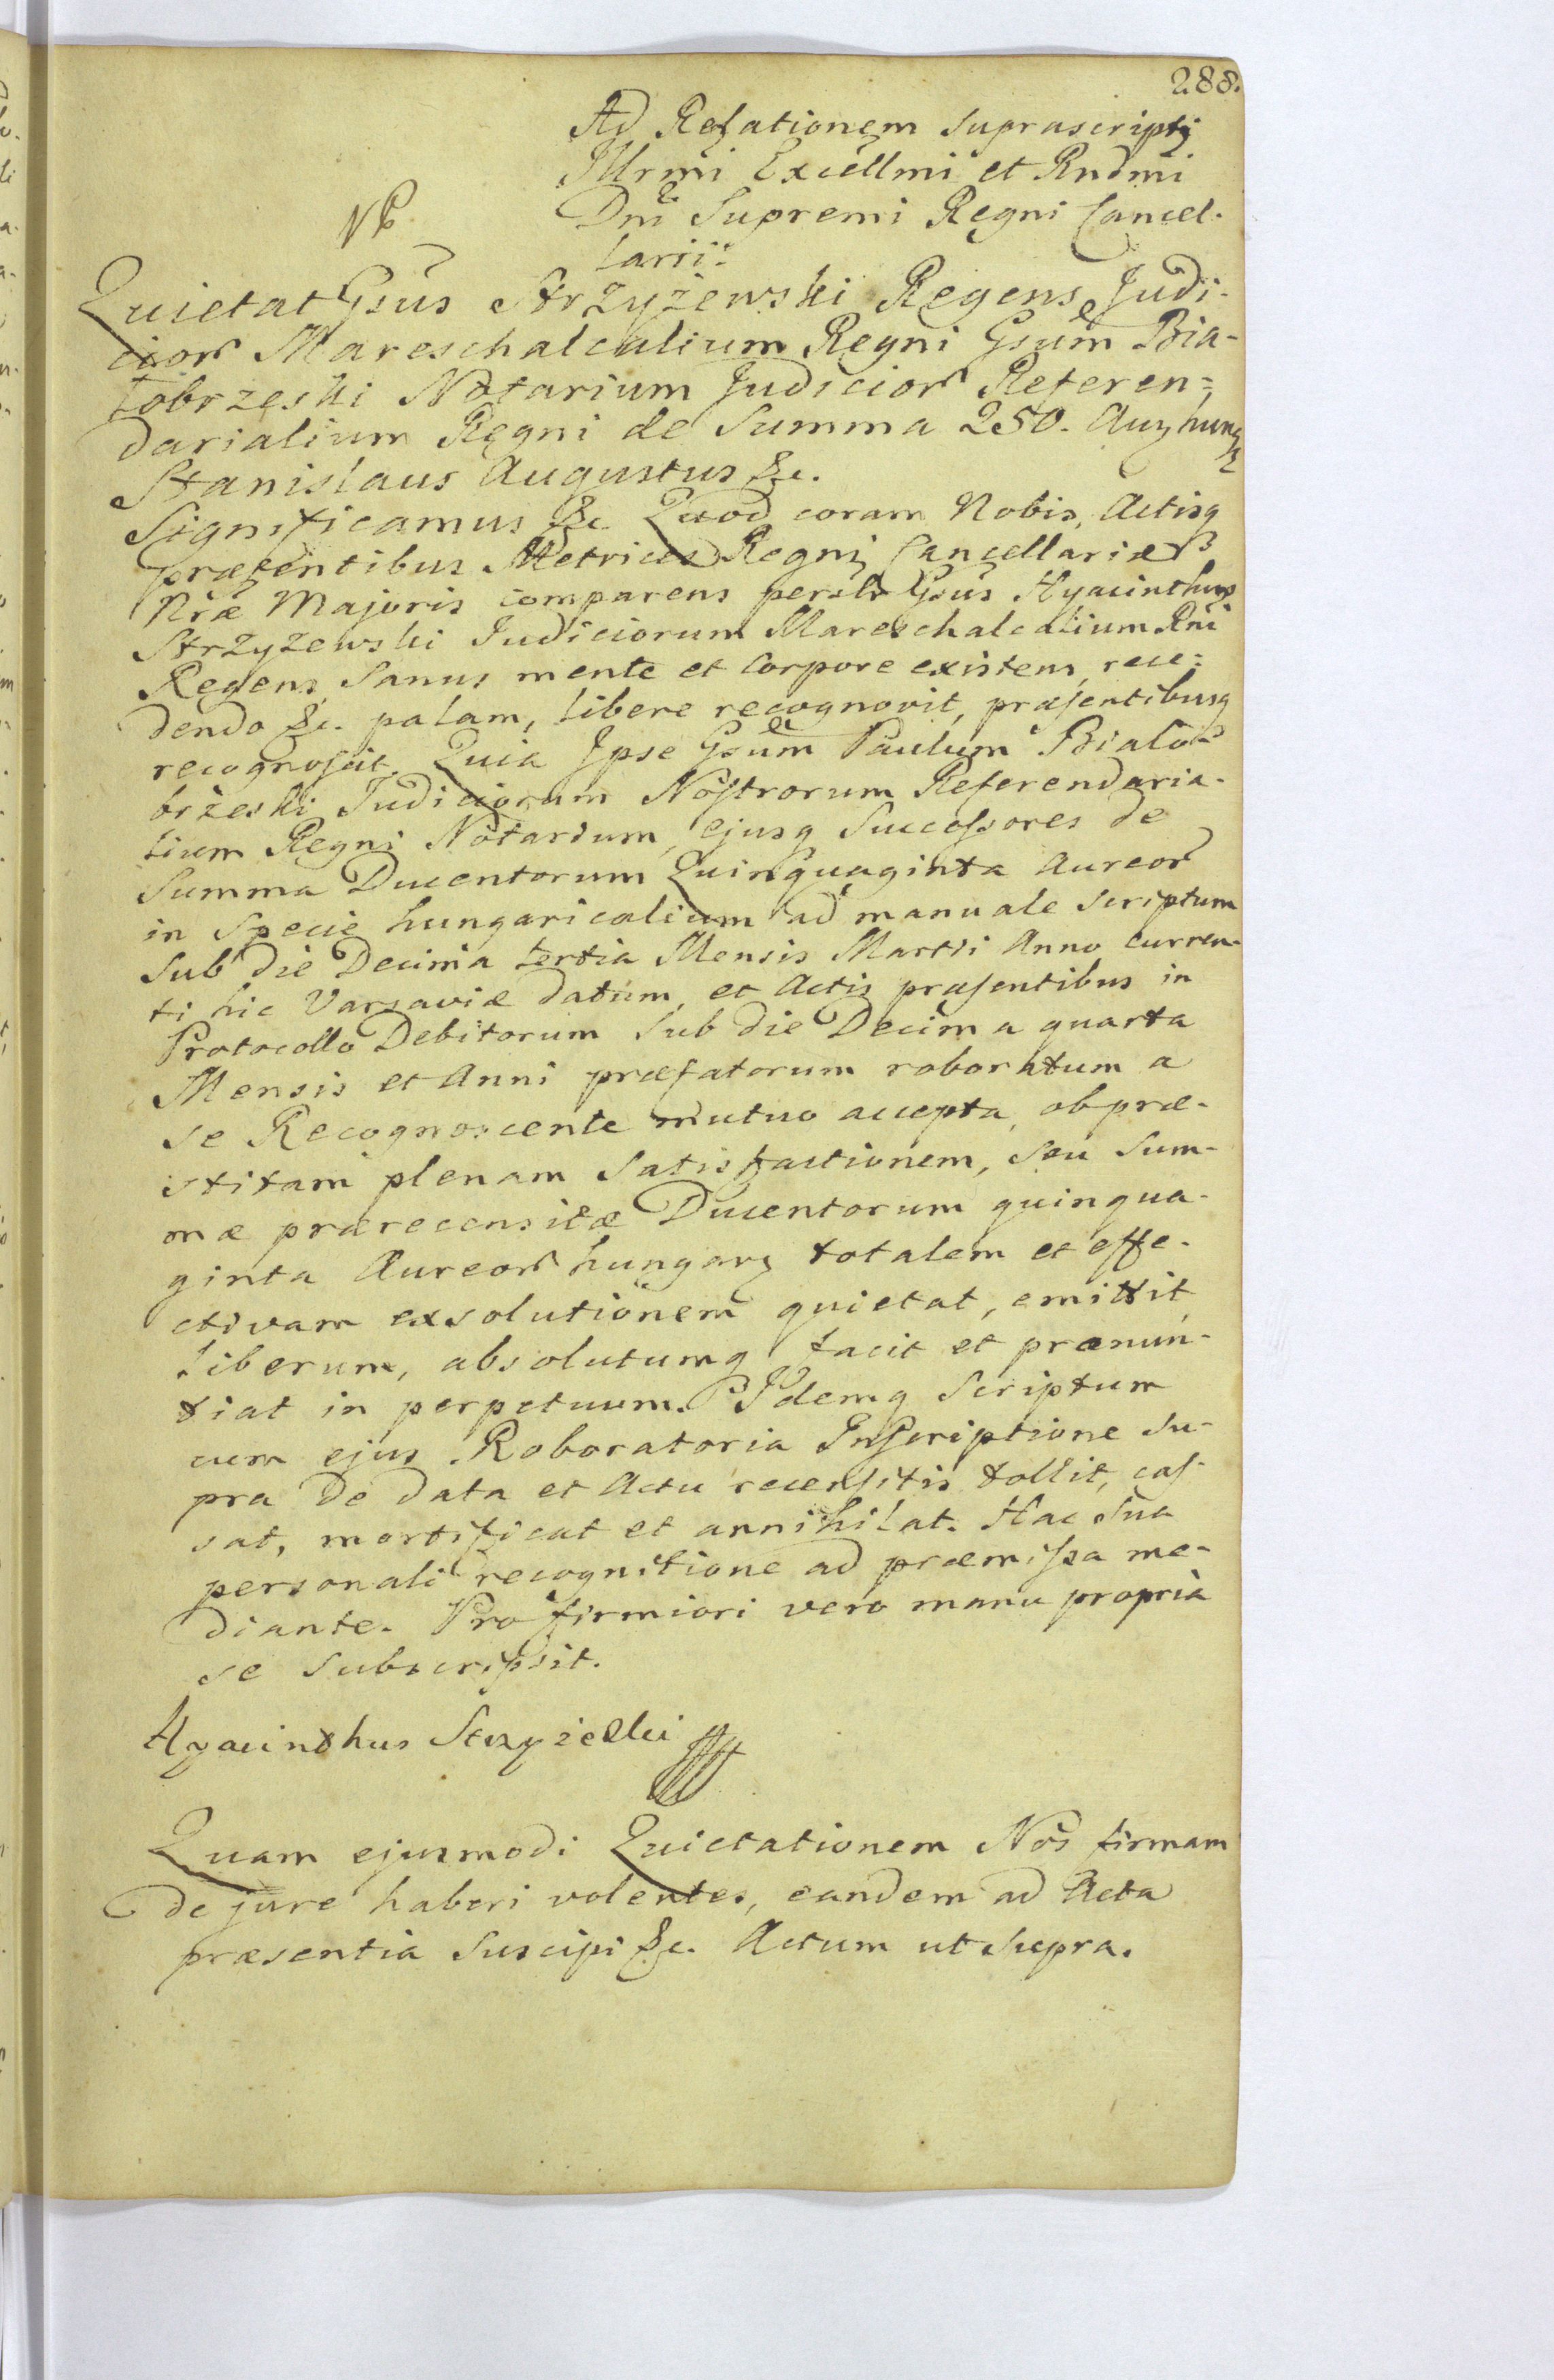 288.
Ad Relationem suprascripti
Illrmi Excellmi et Rndmi
Dni Supremi Regni Cancel-
larii:
NB
Quietat Gsus Strzyżewski Regens Judi-
cior Mareschalcalium Regni Gsum Bia-
łobrzeski Notarium Judicior Referen=
darialium Regni de Summa 250. Aur hung
Stanislaus Augustus &c.
Significamus &c Quod coram Nobis, Actisq
præsentibus Metrices Regni Cancellariæ
Nræ Majoris comparens persler Gsus Hyacinthus
Strzyżewski Judiciorum Mareschalcalium Rni
Regens, Sanus mente et Corpore existens, rece=
dendo &c. palam, libere recognovit, præsentibusq
recognoscit. Quia Ipse Gsum Paulum Biało-
brżeski Judiciorum Nostrorum Referendaria-
lium Regni Notarium, ejusq Successores de
Summa Ducentorum Quinquaginta Aureor
in Specie hungaricalium ad manuale Scriptum
Sub die Decima tertia Mensis Martii Anno curren-
ti hic Varsaviæ datum, et Actis præsentibus in
Protocollo Debitorum Sub die Decima quarta
Mensis et Anni præfatorum roboratum a
se Recognoscente mutuo accepta, ob præ-
stitam plenam Satisfactionem, seu Sum-
mæ prærecensitæ Ducentorum quinqua-
ginta Aureor hungar totalem et effe-
ctivam exsolutionem quietat, emittit,
liberum, absolutumq facit et prænun-
tiat in perpetuum. Idemq Scriptum
cum ejus Roboratoria Inscriptione Su-
pra de data et Actu recensitis tollit, cas-
sat, mortificat et annihilat. Hac Sua
personali recognitione ad præmissa me-
diante. Pro firmiori vero manu propria
se Subscripsit.
Hyacinthus Strzyżewski
Quam ejusmodi Quietationem Nos firmam
de jure haberi volentes, eandem ad Acta
præsentia Suscipi &c. Actum ut Supra.